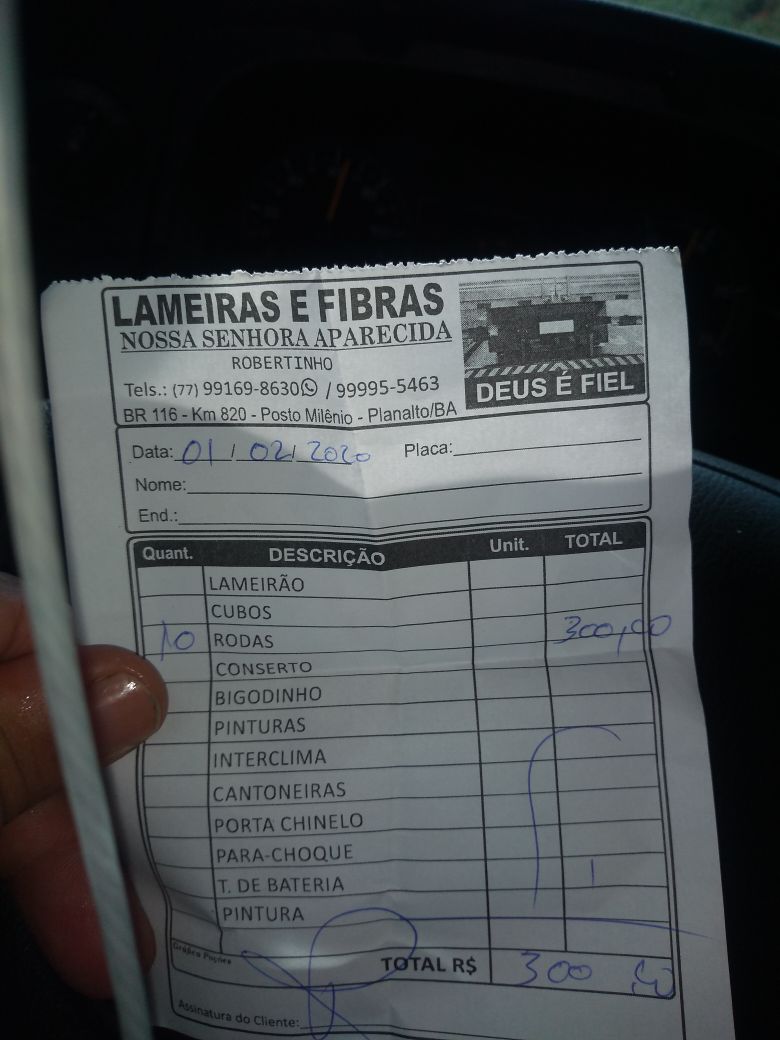 LAMEIRAS E FIBRAS
NOSSA SENHORA APARECIDA
ROBERTINHO
Tels.: (77) 99169-8630 / 99995-5463
BR 116 - Km 820 - Posto Milênio - Planalto/BA
DEUS É FIEL
Data: 01 / 02 / 2020 Placa:
Nome:
End.:
Quant. DESCRIÇÃO Unit. TOTAL
LAMEIRÃO
CUBOS
10 RODAS 300,00
CONSERTO
BIGODINHO
PINTURAS
INTERCLIMA
CANTONEIRAS
PORTA CHINELO
PARA-CHOQUE
T. DE BATERIA
PINTURA
Gráfica Poções
TOTAL R$ 300,00
Assinatura do Cliente: